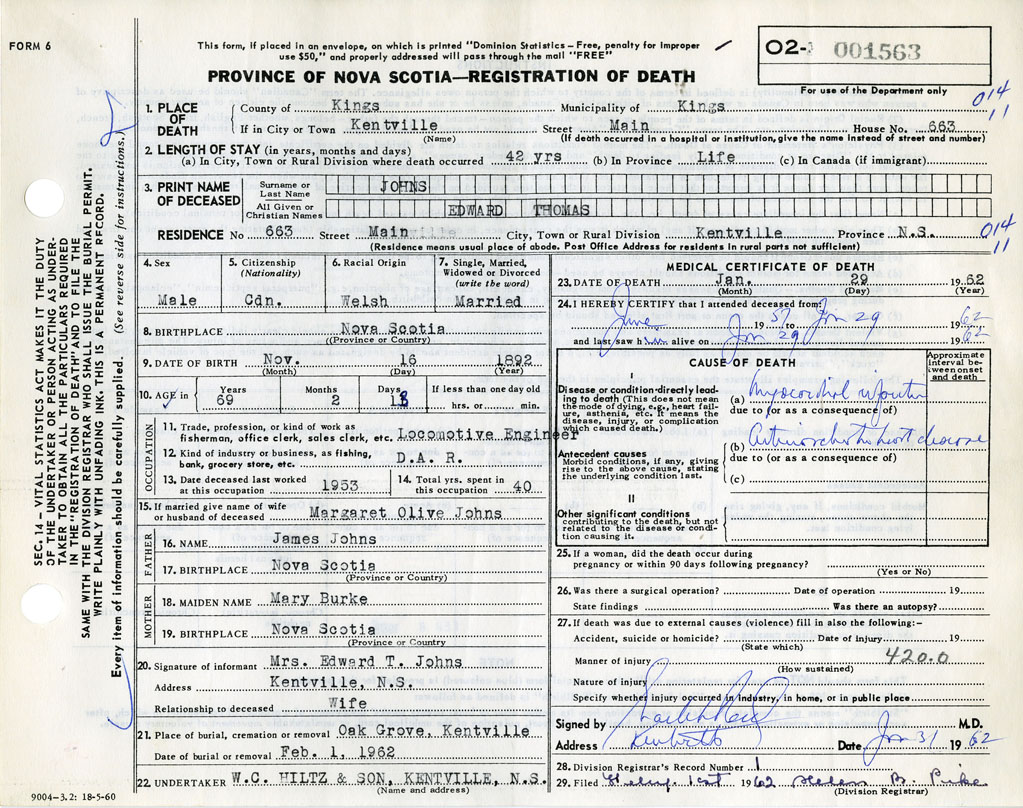 FORM 6
This form, if placed in an envelope, on which is printed "Dominion Statistics – Free, penalty for improper
use $50," and properly addressed will pass through the mail "FREE"
O2- 001563
For use of the Department only
PROVINCE OF NOVA SCOTIA—REGISTRATION OF DEATH
014
11
1. PLACE OF DEATH
County of Kings Municipality of Kings
If in City or Town Kentville Street Main House No. 663
(Name) (If death occurred in a hospital or institution, give the name instead of street and number)
2. LENGTH OF STAY (in years, months and days)
(a) In City, Town or Rural Division where death occurred 42 yrs (b) In Province Life (c) In Canada (if immigrant)
3. PRINT NAME OF DECEASED
Surname or Last Name JOHNS
All Given or Christian Names EDWARD THOMAS
RESIDENCE No 663 Street Main City, Town or Rural Division Kentville Province N.S.
(Residence means usual place of abode. Post Office Address for residents in rural parts not sufficient)
014
11
4. Sex
Male
5. Citizenship (Nationality)
Cdn.
6. Racial Origin
Welsh
7. Single, Married, Widowed or Divorced (write the word)
Married
8. BIRTHPLACE Nova Scotia
(Province or Country)
9. DATE OF BIRTH Nov. 16 1892
(Month) (Day) (Year)
10. AGE in Years 69 Months 2 Days 13 If less than one day old
hrs. or min.
OCCUPATION
11. Trade, profession, or kind of work as
fisherman, office clerk, sales clerk, etc. Locomotive Engineer
12. Kind of industry or business, as fishing,
bank, grocery store, etc. D.A.R.
13. Date deceased last worked at this occupation 1953
14. Total yrs. spent in this occupation 40
15. If married give name of wife
or husband of deceased Margaret Olive Johns
FATHER
16. NAME James Johns
17. BIRTHPLACE Nova Scotia
(Province or Country)
MOTHER
18. MAIDEN NAME Mary Burke
19. BIRTHPLACE Nova Scotia
(Province or Country
20. Signature of informant Mrs. Edward T. Johns
Address Kentville, N.S.
Relationship to deceased Wife
21. Place of burial, cremation or removal Oak Grove, Kentville
Date of burial or removal Feb. 1, 1962
22. UNDERTAKER W.C. HILTZ & SON, KENTVILLE, N.S.
(Name and address)
MEDICAL CERTIFICATE OF DEATH
23. DATE OF DEATH Jan. 29 1962
(Month) (Day) (Year)
24. I HEREBY CERTIFY that I attended deceased from:
June 1957 to Jan 29 1962
and last saw him alive on Jan 29 1962
CAUSE OF DEATH
Approximate interval between onset and death
I
Disease or condition directly leading to death (This does not mean
the mode of dying, e.g., heart failure, asthenia, etc. It means the
disease, injury, or complication
which caused death.)
(a) Myocardial infarction
due to (or as a consequence of)
(b) Arteriosclerotic heart disease
due to (or as a consequence of)
(c)
Antecedent causes
Morbid conditions, if any, giving
rise to the above cause, stating
the underlying condition last.
II
Other significant conditions
contributing to the death, but not
related to the disease or condition causing it.
25. If a woman, did the death occur during
pregnancy or within 90 days following pregnancy?
(Yes or No)
26. Was there a surgical operation? Date of operation 19
State findings Was there an autopsy?
27. If death was due to external causes (violence) fill in also the following:-
Accident, suicide or homicide? Date of injury 19
(State which)
Manner of injury 420.0
(How sustained)
Nature of injury
Specify whether injury occurred in industry, in home, or in public place
Signed by M.D.
Address Kentville Date Jan 31 1962
28. Division Registrar's Record Number 1
29. Filed 1962 Helen B. Pike
(Division Registrar)
SEC. 14–VITAL STATISTICS ACT MAKES IT THE DUTY
OF THE UNDERTAKER OR PERSON ACTING AS UNDERTAKER TO OBTAIN ALL THE PARTICULARS REQUIRED
IN THE "REGISTRATION OF DEATH" AND TO FILE THE
SAME WITH THE DIVISION REGISTRAR WHO SHALL ISSUE THE BURIAL PERMIT.
WRITE PLAINLY WITH UNFADING INK. THIS IS A PERMANENT RECORD.
Every item of information should be carefully supplied. (See reverse side for instructions.)
9004–3.2: 18-5-60